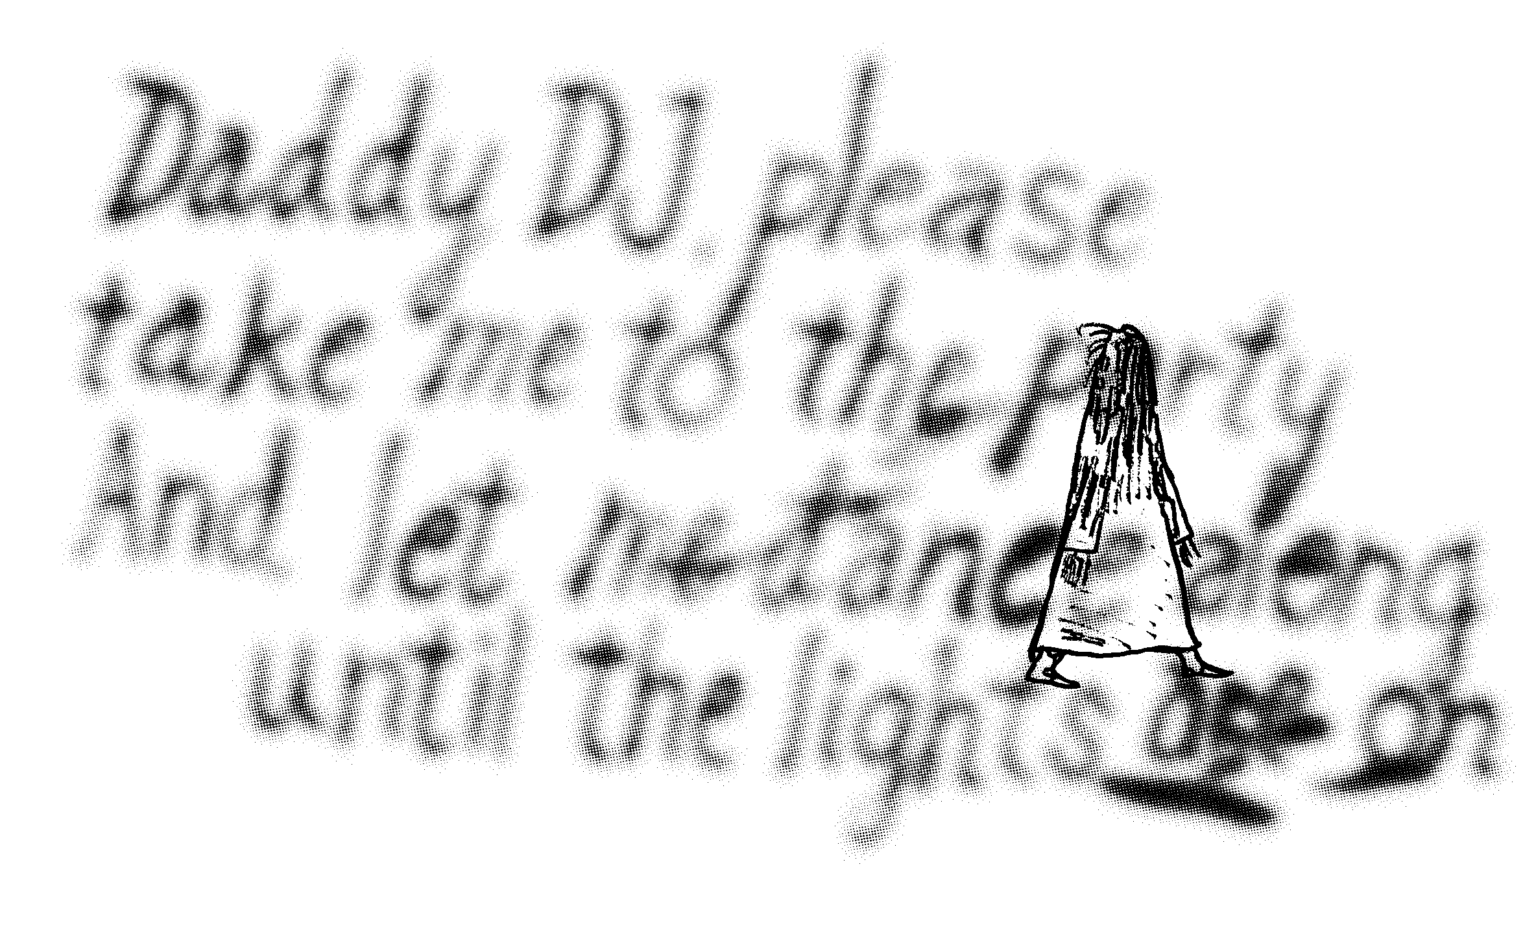 Daddy DJ. please
take me to the party
And let me dance along
until the lights go on